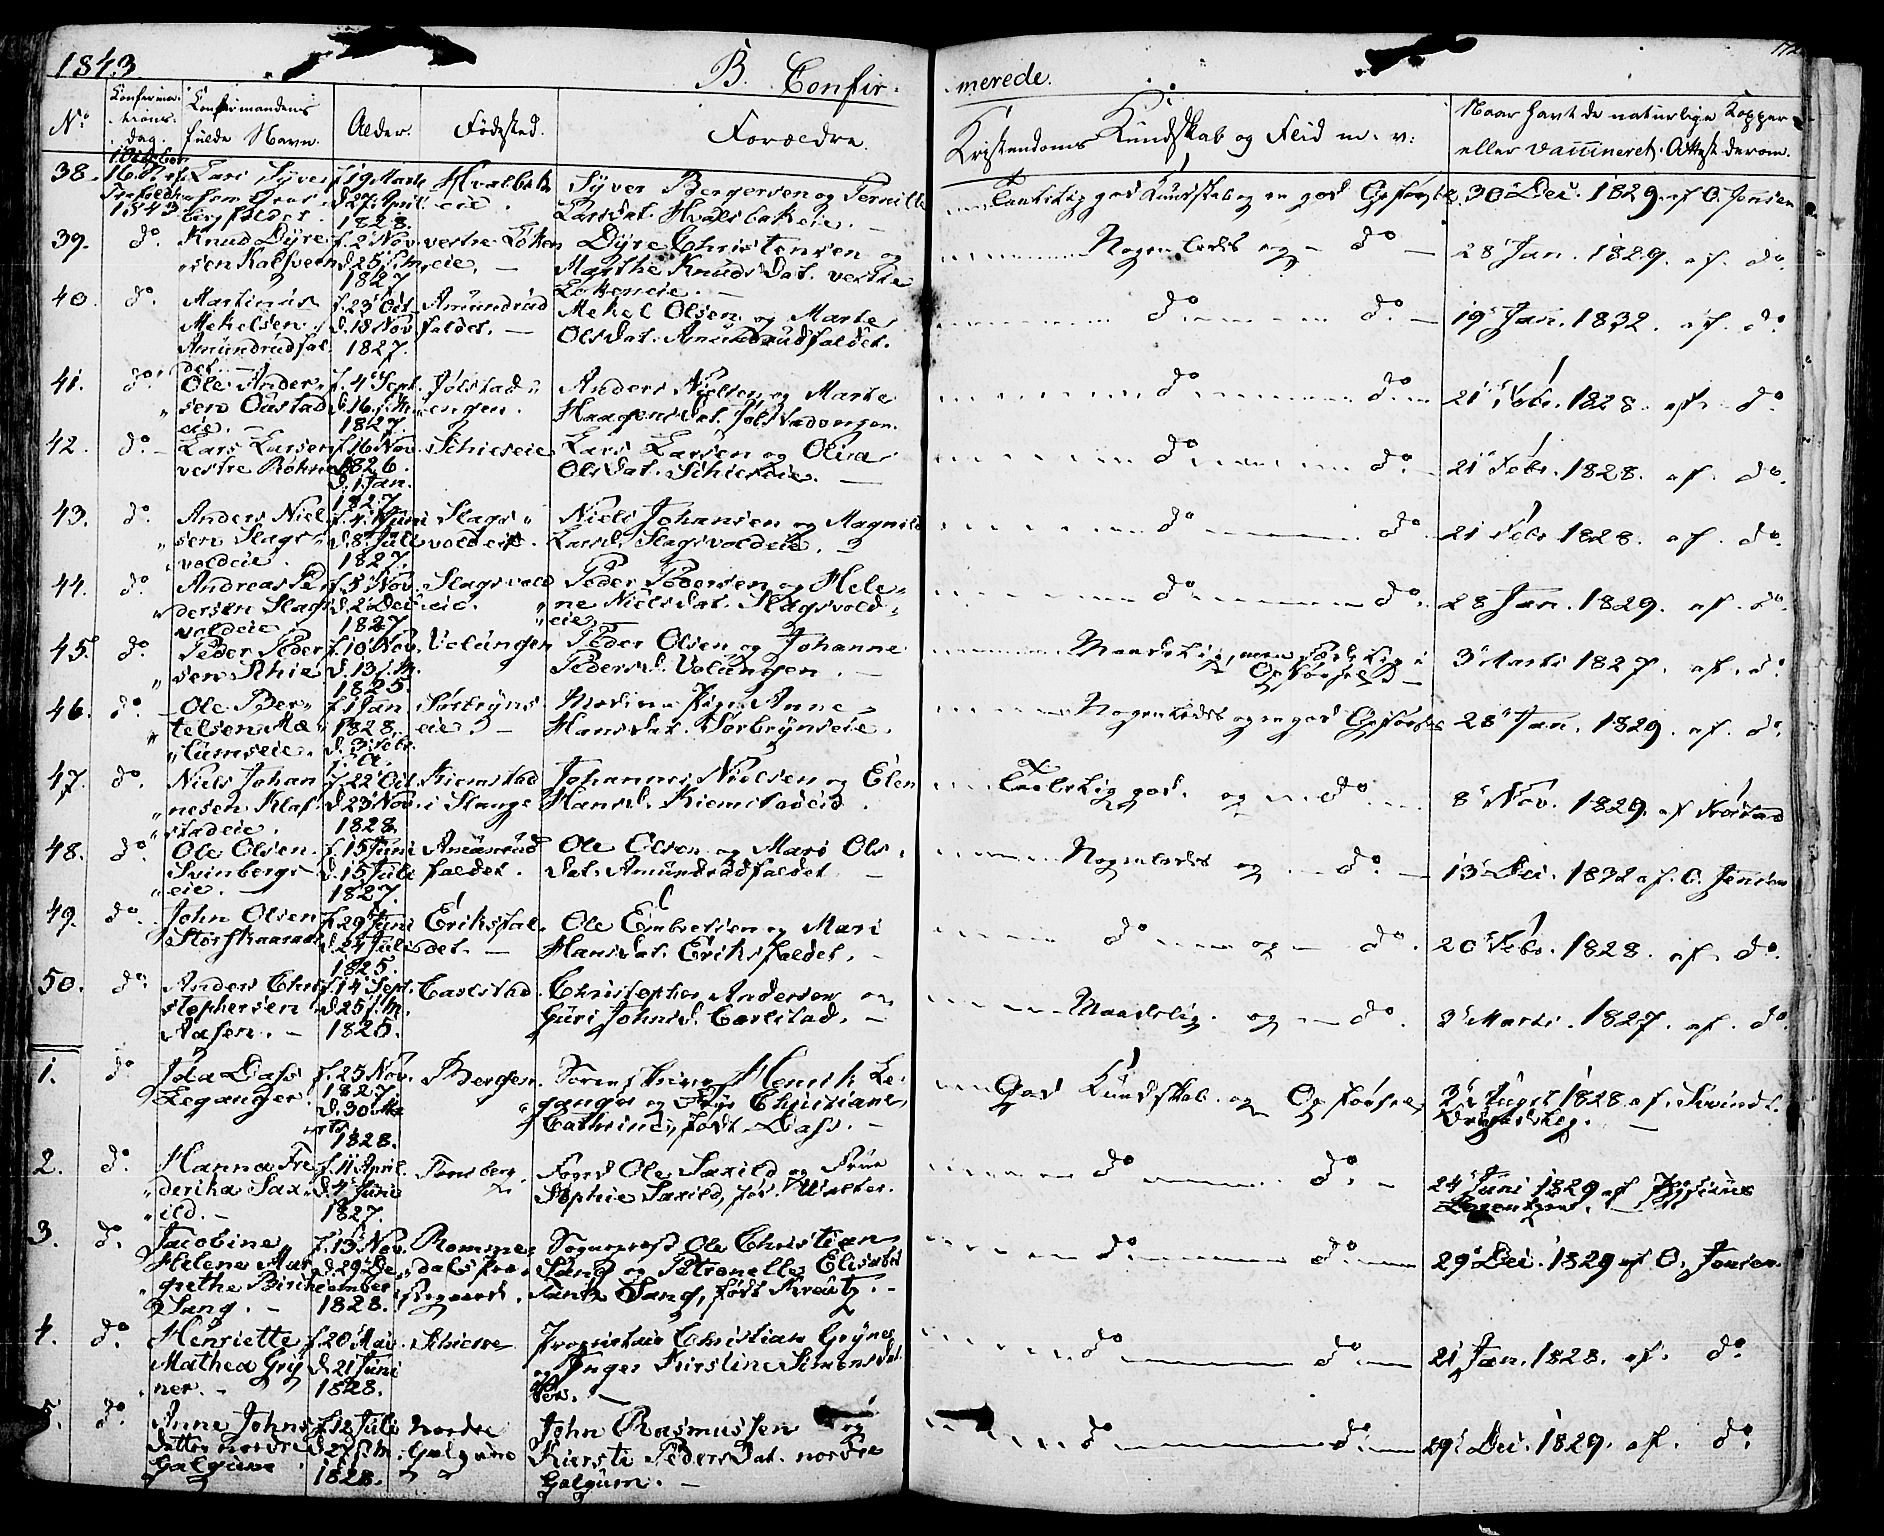 1843.
B. Confir-
merede.
172
No
Konfirma-
tions-
dag.
Konfirmandens
fulde Navn.
Alder.
Fødested.
Forældre.
Kristendoms Kundskab og Flid m: v:
Naar havt de naturlige Kopper
eller vaccineret. Attest derom.
38.
1843
Lars Syver-
f. 19 Marts
d. 27 April
1828.
Hvalbek-
eie.
Syver Bergersen og Pernille
Larsdat. Hvalsbakeie. —
god Kundskab og en god Opførsel
30 Dec. 1829. af O. Jensen
39.
do.
Knud Dyre-
sen Kalsveen
f. 2 Nov.
d. 25 s. M.
1827
vestre Løken-
eie. —
Dyre Christensen og
Marthe Knudsdat. vestre
Løkeneie. —
Nogenledes og — do —
28 Jan. 1829. af do.
40.
do.
Martinus
Mekelsen
Amundrudfal-
det.
f. 23 Oct.
d. 18 Nov.
1827.
Amundrud
faldet. —
Mekel Olsen og Marte
Olsdat. Amundrudfaldet.
do. do. —
19 Jan. 1832. af do.
41.
do.
Ole Ander-
sen Oustad
eie. —
f. 4 Sept.
d. 16 s. M.
1827.
Jølstad-
engen.
Anders Nielsen og Marte
Haagensdat. Jølstadengen.
do do.
21 Febr. 1828. af do.
42.
do. —
Lars Larsen
vestre Røhne
f. 16 Nov.
1826.
d. 1 Jan.
1827
Schieseie
Lars Larsen og Olea
Olsdat. Schieseie. —
do. do. —
21 Febr. 1828. af do.
43.
do.
Anders Niel-
sen Slags-
voldeie.
f. 4 Juni
d. 8 Juli
1827.
Slags-
voldeie.
Niels Johansen og Magnild
Larsd. Slagsvoldeie.
do do.
21 Febr. 1828. af do.
44.
do.
Andreas Pe-
dersen Slags-
voldeie.
f. 5 Nov.
d. 2 Dec
1827
Slagsvold
eie.
Peder Pedersen og Hele-
ne Nielsdat. Slagsvold-
eie.
do do.
28 Jan. 1829. af do.
45.
do.
Peder Peder-
sen Schie
f. 10 Nov.
d. 13 s. M.
1825.
Volungen
Peder Olsen og Johanne
Pedersd. Volungen. —
Maadelig, men
Opførsel
3 Marts 1827. af do
46.
do.
Ole Ber-
telsen
f. 1 Jan
1828.
d. 3 Febr.
Sørbryns
eie. —
Pige Anne
Hansdat. Sørbrynseie.
Nogenledes og en god Opførsel
28 Jan. 1829. af do.
47.
do.
Niels Johan-
nesen Klaf-
stadeie.
f. 22 Oct.
d. 23 Nov.
1828.
Kiemstad
i Stange
Johannes Nielsen og Elen
Hansd. Kiemstadeie.
god. og — do.
8 Nov. 1829. af
48.
do.
Ole Olsen
Svinbergs-
eie. —
f. 15 Juni
d. 15 Juli
1827.
Amundrud
faldet.
Ole Olsen og Mari Ols-
dat. Amundrudfaldet —
Nogenledes og — do. —
13 Dec. 1832 af O. Jensen
49.
do.
John Olsen
f. 29 Juni
d. 24 Juli
1825.
Eriksfal-
det. —
Ole Embretsen og Mari
Hansdat. Eriksfaldet. —
do og — do.
20 Febr. 1828. af do.
50.
do.
Anders Chri-
stophersen
Aasen. —
f. 14 Sept.
d. 25 s. M.
1825.
Carlstad.
Christopher Andersen og
Guri Johnsd. Carlstad. —
Maadelig. og — do.
3 Marts. 1827. af. do
1.
do
Ida Dass
Leganger.
f. 25 Nov.
1827.
d. 30 Ma-
rts
1828.
Bergen.
Sorenskriver Henrik Le-
ganger og Frue Christiane
Cathrine, født Dass. —
God Kundskab og Opførsel
2 August 1828 af.
2.
do.
Hanna Fre-
derika Sax-
ild. —
f. 11 April.
d. 4 Juni
1827.
Tønsberg.
Foged Ole Saxild og Frue
Sophie Saxild, fød
do do. —
24 Juni 1829 af
3.
do.
Jacobine
Helene Mar-
grethe Birch
Sang. —
f. 13 Nov.
d. 29 De-
cember
1828.
Romme-
dals Præ-
stegaard.
Sognepræst Ole Christian
Sang og Petronelle Elisabeth
Sang, født Kreutz. —
do. do. —
29 Dec. 1829 af O. Jensen.
4.
do
Henriette
Mathea Gry-
ner. —
f. 20 Mai
d. 21 Juni
1828.
Schierre
Proprietair Christian Gryner
og Inger Kirstine Simensdat-
ter. —
do do. —
21 Jan. 1828. af. do.
5.
do.
Anne Johns-
datter nordre
Galgum
f. 12 Juli
d. 27 s. M.
1828.
Nordre
Galgum
John Rasmussen og
Kiersti Pedersdat. nordre
Galgum. —
do do. —
29 Dec. 1829. af. do.